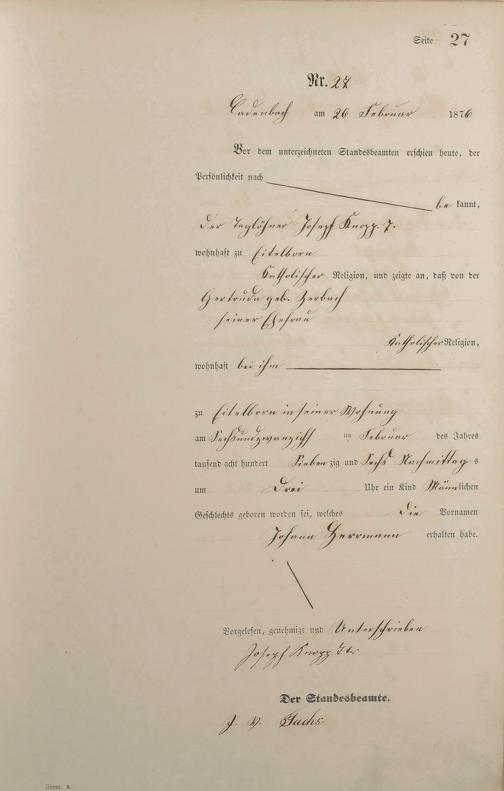 Seite 27
Nr. 27
Cadenbach am 26 Februar 1876
Vor dem unterzeichneten Standesbeamten erschien heute, der
Persönlichkeit nach
be kannt,
der Taglöhner Joseph Knopp
wohnhaft zu Eitelborn
Katholischer Religion, und zeigte an, daß von der
Gertruda geb. Zerbach
seiner Ehefrau
Katholischer Religion,
wohnhaft bei ihm
zu Eitelborn in seiner Wohnung
am Sechsundzwanzigst Februar des Jahres
tausend acht hundert Sieben zig und Sechs Nachmittag s
um Drei Uhr ein Kind Männlichen
Geschlechts geboren worden sei, welches Die Vornamen
Johann Herrmann erhalten habe.
Vorgelesen, genehmigt und Unterschrieben
Joseph Knopp
Der Standesbeamte.
J. V. Fuchs
Form. A.